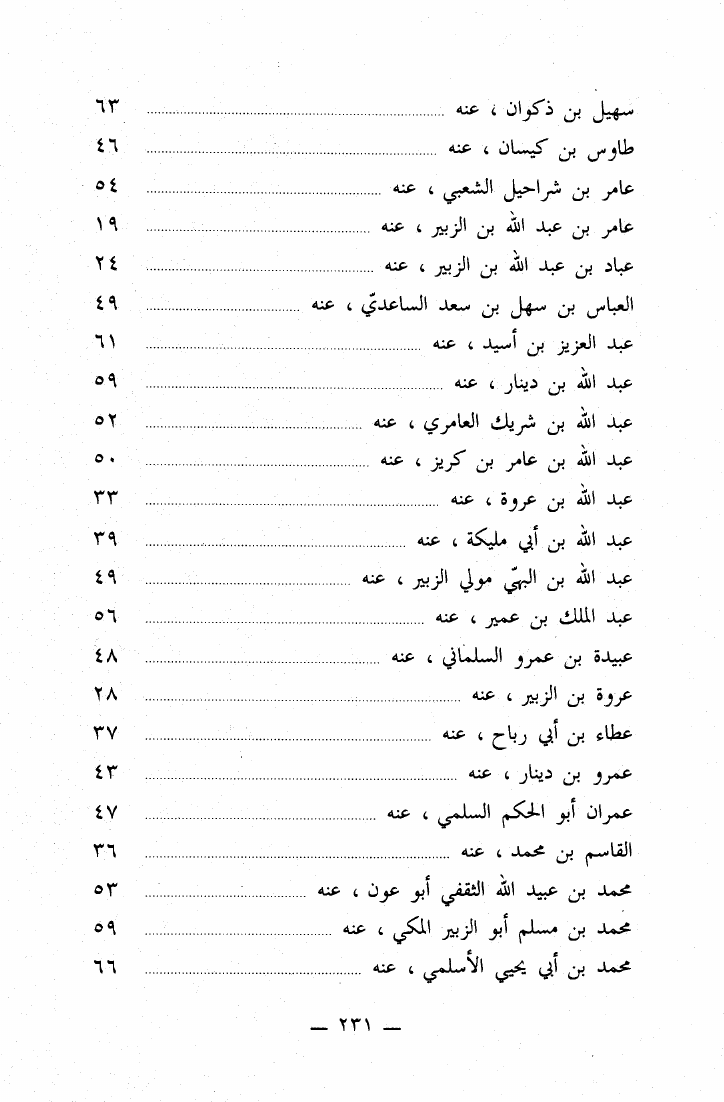 سهيل بن ذكوان ، عنه ........ ٦٣
طاوس بن كيسان ، عنه ........ ٤٦
عامر بن شراحيل الشعبي ، عنه ........ ٥٤
عامر بن عبد الله بن الزبير ، عنه ........ ١٩
عباد بن عبد الله بن الزبير ، عنه ........ ٢٤
العباس بن سهل بن سعد الساعديّ ، عنه ........ ٤٩
عبد العزيز بن أسيد ، عنه ........ ٦١
عبد الله بن دينار ، عنه ........ ٥٩
عبد الله بن شريك العامري ، عنه ........ ٥٢
عبد الله بن عامر بن كريز ، عنه ........ ٥٠
عبد الله بن عروة ، عنه ........ ٣٣
عبد الله بن أبي مليكة ، عنه ........ ٣٩
عبد الله بن البهيّ مولي الزبير ، عنه ........ ٤٩
عبد الملك بن عمير ، عنه ........ ٥٦
عبيدة بن عمرو السلماني ، عنه ........ ٤٨
عروة بن الزبير ، عنه ........ ٢٨
عطاء بن أبي رباح ، عنه ........ ٣٧
عمرو بن دينار ، عنه ........ ٤٣
عمران أبو الحكم السلمي ، عنه ........ ٤٧
القاسم بن محمد ، عنه ........ ٣٦
محمد بن عبيد الله الثقفي أبو عون ، عنه ........ ٥٣
محمد بن مسلم أبو الزبير المكي ، عنه ........ ٥٩
محمد بن أبي يحيي الأسلمي ، عنه ........ ٦٦
— ٢٣١ —